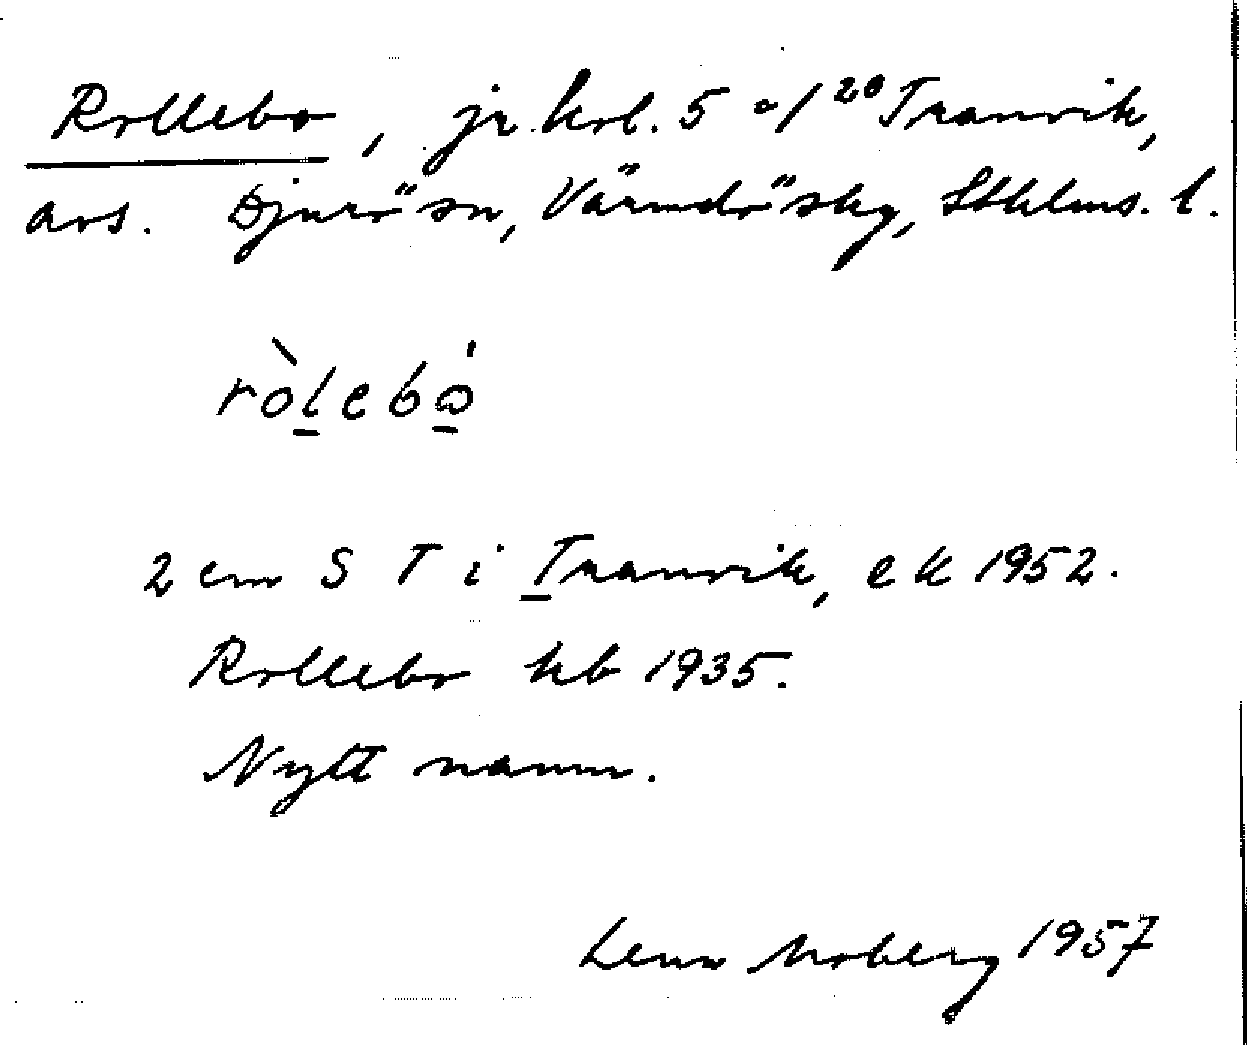 Rollebo, jr. hrl. 5 a/20 Tranvik,
avs. Djurö sn, Värmdö skg, Sthlms. l.
ròlebó
2 cm S T i Tranvik, ek 1952.
Rollebo kb 1935.
Nytt namn.
Lena Moberg 1957